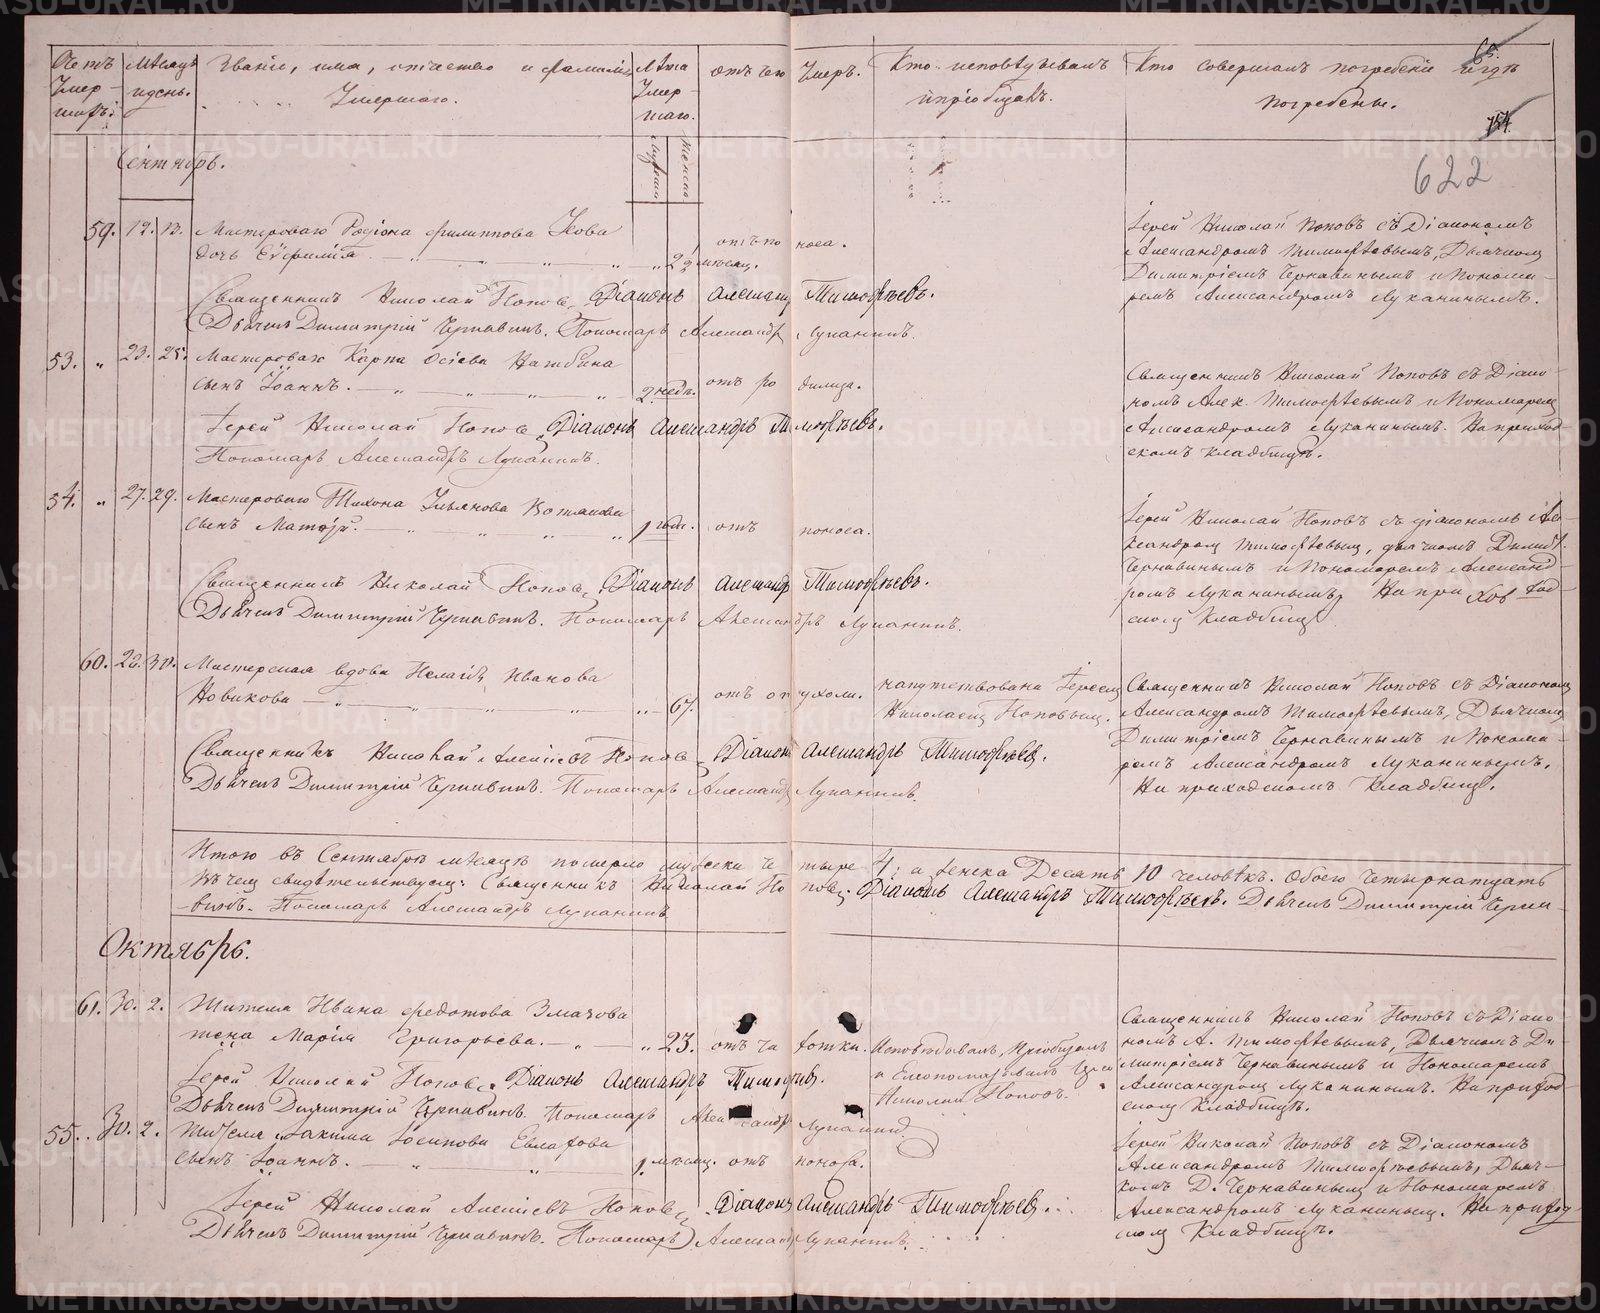 Счетъ умершихъ.
Мѣсяцъ и день.
Званіе, имя, отчество и фамилія умершаго.
Лѣта умершаго.
Мужеска
Женска
Отъ чего умеръ.
Кто исповѣдывалъ и пріобщалъ.
Кто совершалъ погребеніе и гдѣ погребены.
65.
622
Сентябрь.
59. 12. 13. Мастероваго Родіона Филиппова
дочь Евфимія
мѣсяц.
отъ поноса.
Іерей Николай Поповъ съ Діакономъ
Александромъ Тимофѣевымъ, Дьячкомъ
Димитріемъ Чернавинымъ и Понома-
ремъ Александромъ Луканинымъ.
Священникъ Николай Поповъ, Діаконъ Александръ Тимофѣевъ.
Дьячекъ Димитрій Чернавинъ. Пономарь Александръ Луканинъ.
53. „ 23. 25. Мастероваго Карпа Осіева
сынъ Іоаннъ.
2 недѣ.
отъ родимца.
Священникъ Николай Поповъ съ Діако-
номъ Алек. Тимофѣевымъ и Пономарем
Александромъ Луканинымъ. На приход-
скомъ кладбищѣ.
Іерей Николай Поповъ, Діаконъ Александръ Тимофѣевъ.
Пономарь Александръ Луканинъ.
54. „ 27. 29. Мастероваго Тихона Ульянова
сынъ Матѳій.
1 годъ.
отъ поноса.
Іерей Николай Поповъ съ діакономъ Але-
ксандром Тимофѣевым, дьячкомъ Димит.
Чернавинымъ и Пономаремъ Александ-
ромъ Луканинымъ, На приход-
ском Кладбищѣ
Священникъ Николай Поповъ, Діаконъ Александръ Тимофѣевъ.
Дьячекъ Димитрій Чернавинъ. Пономарь Александръ Луканинъ.
60. 28. 30. Мастерская вдова Пелагія Иванова
Новикова
67.
отъ опухоли.
напутствована Іереем
Николаем Поповым.
Священникъ Николай Поповъ съ Діаконом
Александромъ Тимофѣевымъ, Дьячком
Димитріемъ Чернавинымъ и Понома-
ремъ Александромъ Луканинымъ.
На приходскомъ Кладбищѣ.
Священникъ Николай Алексіевъ Поповъ, Діаконъ Александръ Тимофѣевъ.
Дьячекъ Димитрій Чернавинъ. Пономарь Александръ Луканинъ.
Итого въ Сентябрѣ мѣсяцѣ померло мужеска четыре 4; а женска Десять 10 человѣкъ. Обоего четырнатцать
Въ чем свидѣтельствуем: Священникъ Николай Поповъ. Діаконъ Александръ Тимофѣевъ. Дьячекъ Димитрій Черна-
винъ. Пономарь Александръ Луканинъ
Октябрь.
61. 30. 2. Жителя Ивана Федотова
жена Марія Григорьева.
23.
отъ чахотки.
Исповѣдовалъ, Пріобщалъ
и Елеопомазовалъ Іерей
Николай Поповъ.
Священникъ Николай Поповъ съ Діако
номъ А. Тимофѣевымъ, Дьячкомъ Ди-
митріемъ Чернавинымъ и Пономаремъ
Александром Луканиномъ. На приход-
ском Кладбищѣ.
Іерей Николай Поповъ. Діаконъ Александръ Тимофѣевъ.
Дьячекъ Димитрій Чернавинъ. Пономарь Александръ Луканинъ.
55. 30. 2. Жителя Іакима Іосипова
сынъ Іоаннъ.
1 мѣсяц.
отъ поноса.
Іерей Николай Поповъ съ Діакономъ
Александромъ Тимофѣевымъ, Дьяч-
комъ Д. Чернавиным и Пономаремъ
Александромъ Луканиным. На приход
ском Кладбищѣ.
Іерей Николай Алексіевъ Поповъ, Діаконъ Александръ Тимофѣевъ.
Дьячекъ Димитрій Чернавинъ. Пономарь Александръ Луканинъ.
METRIKI.GASO-URAL.RU